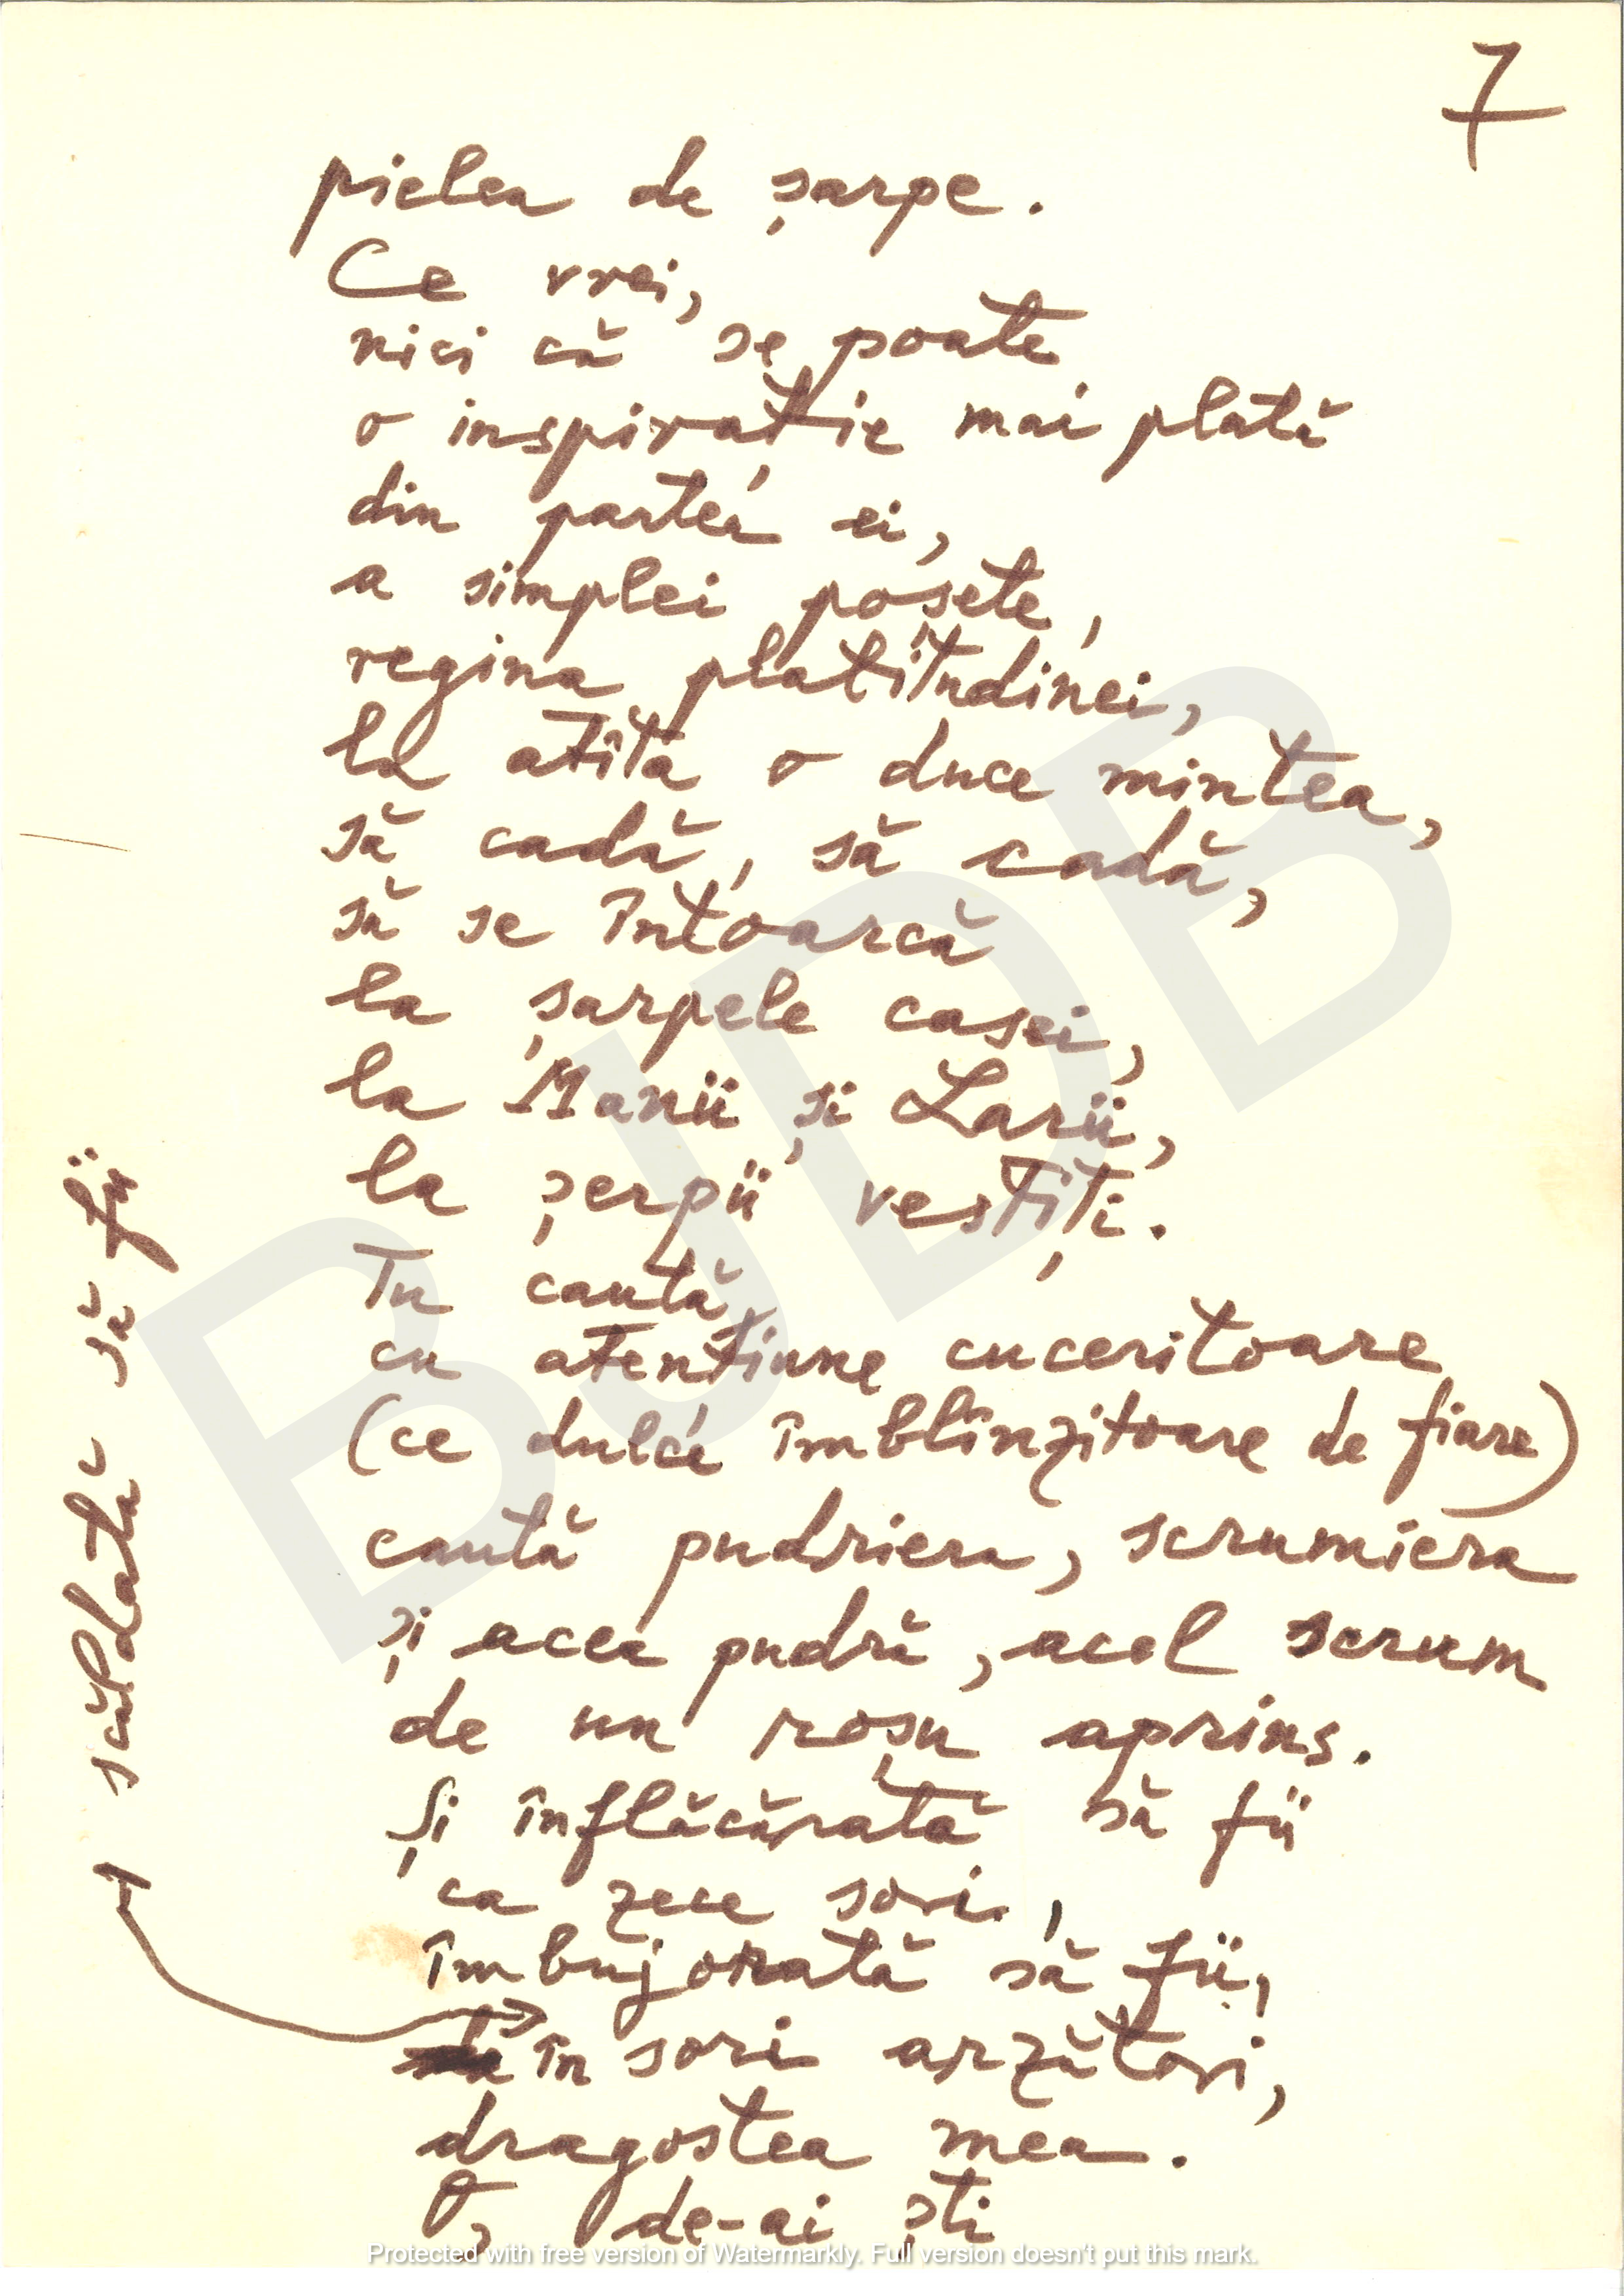 7
pielea de șarpe.
Ce vrei,
nici că se poate
o inspirație mai plată
din partea ei,
a simplei poșete,
regina platitudinei,
la atîta o duce mintea,
să cadă, să cadă,
să se întoarcă
la șarpele casei,
la Manii și Larii,
la șerpii vestiți.
Tu caută
cu atențiune cuceritoare
(ce dulce îmblînzitoare de fiare)
caută pudriera, scrumiera
și acea pudră, acel scrum
de un roșu aprins.
Și înflăcărată să fii
ca zece sori,
îmbujorată să fii,
în sori arzători,
dragostea mea.
O, de-ai ști
scăldată să fii
BJDB
Protected with free version of Watermarkly. Full version doesn't put this mark.